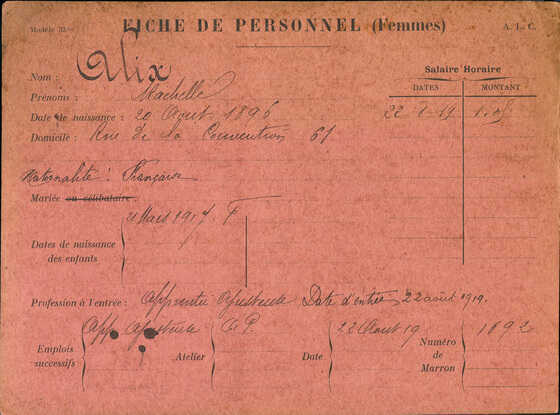 Modèle 32
FICHE DE PERSONNEL (Femmes)
A. L. C.
Nom : Alix
Prénoms : Machelle
Date de naissance : 20 Aout 1896
Domicile : Rue de la Convention 61
Salaire Horaire
DATES MONTANT
22-8-19
Nationalité : Française
Mariée ou célibataire
2 Mars 1917. F
Dates de naissance
des enfants
Profession à l'entrée : Apprentie Ajusteuse Date d'entrée 22 août 1919.
Emplois
successifs
App Ajusteuse
Atelier
G.P.
Date
22 Aout 19
Numéro
de
Marron
1892